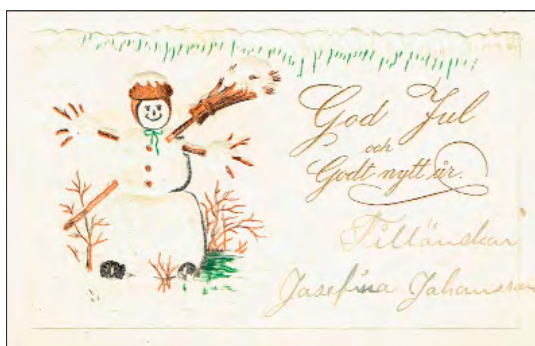 God Jul
och
Godt nytt år.
Tillönskar
Josefina Johansson